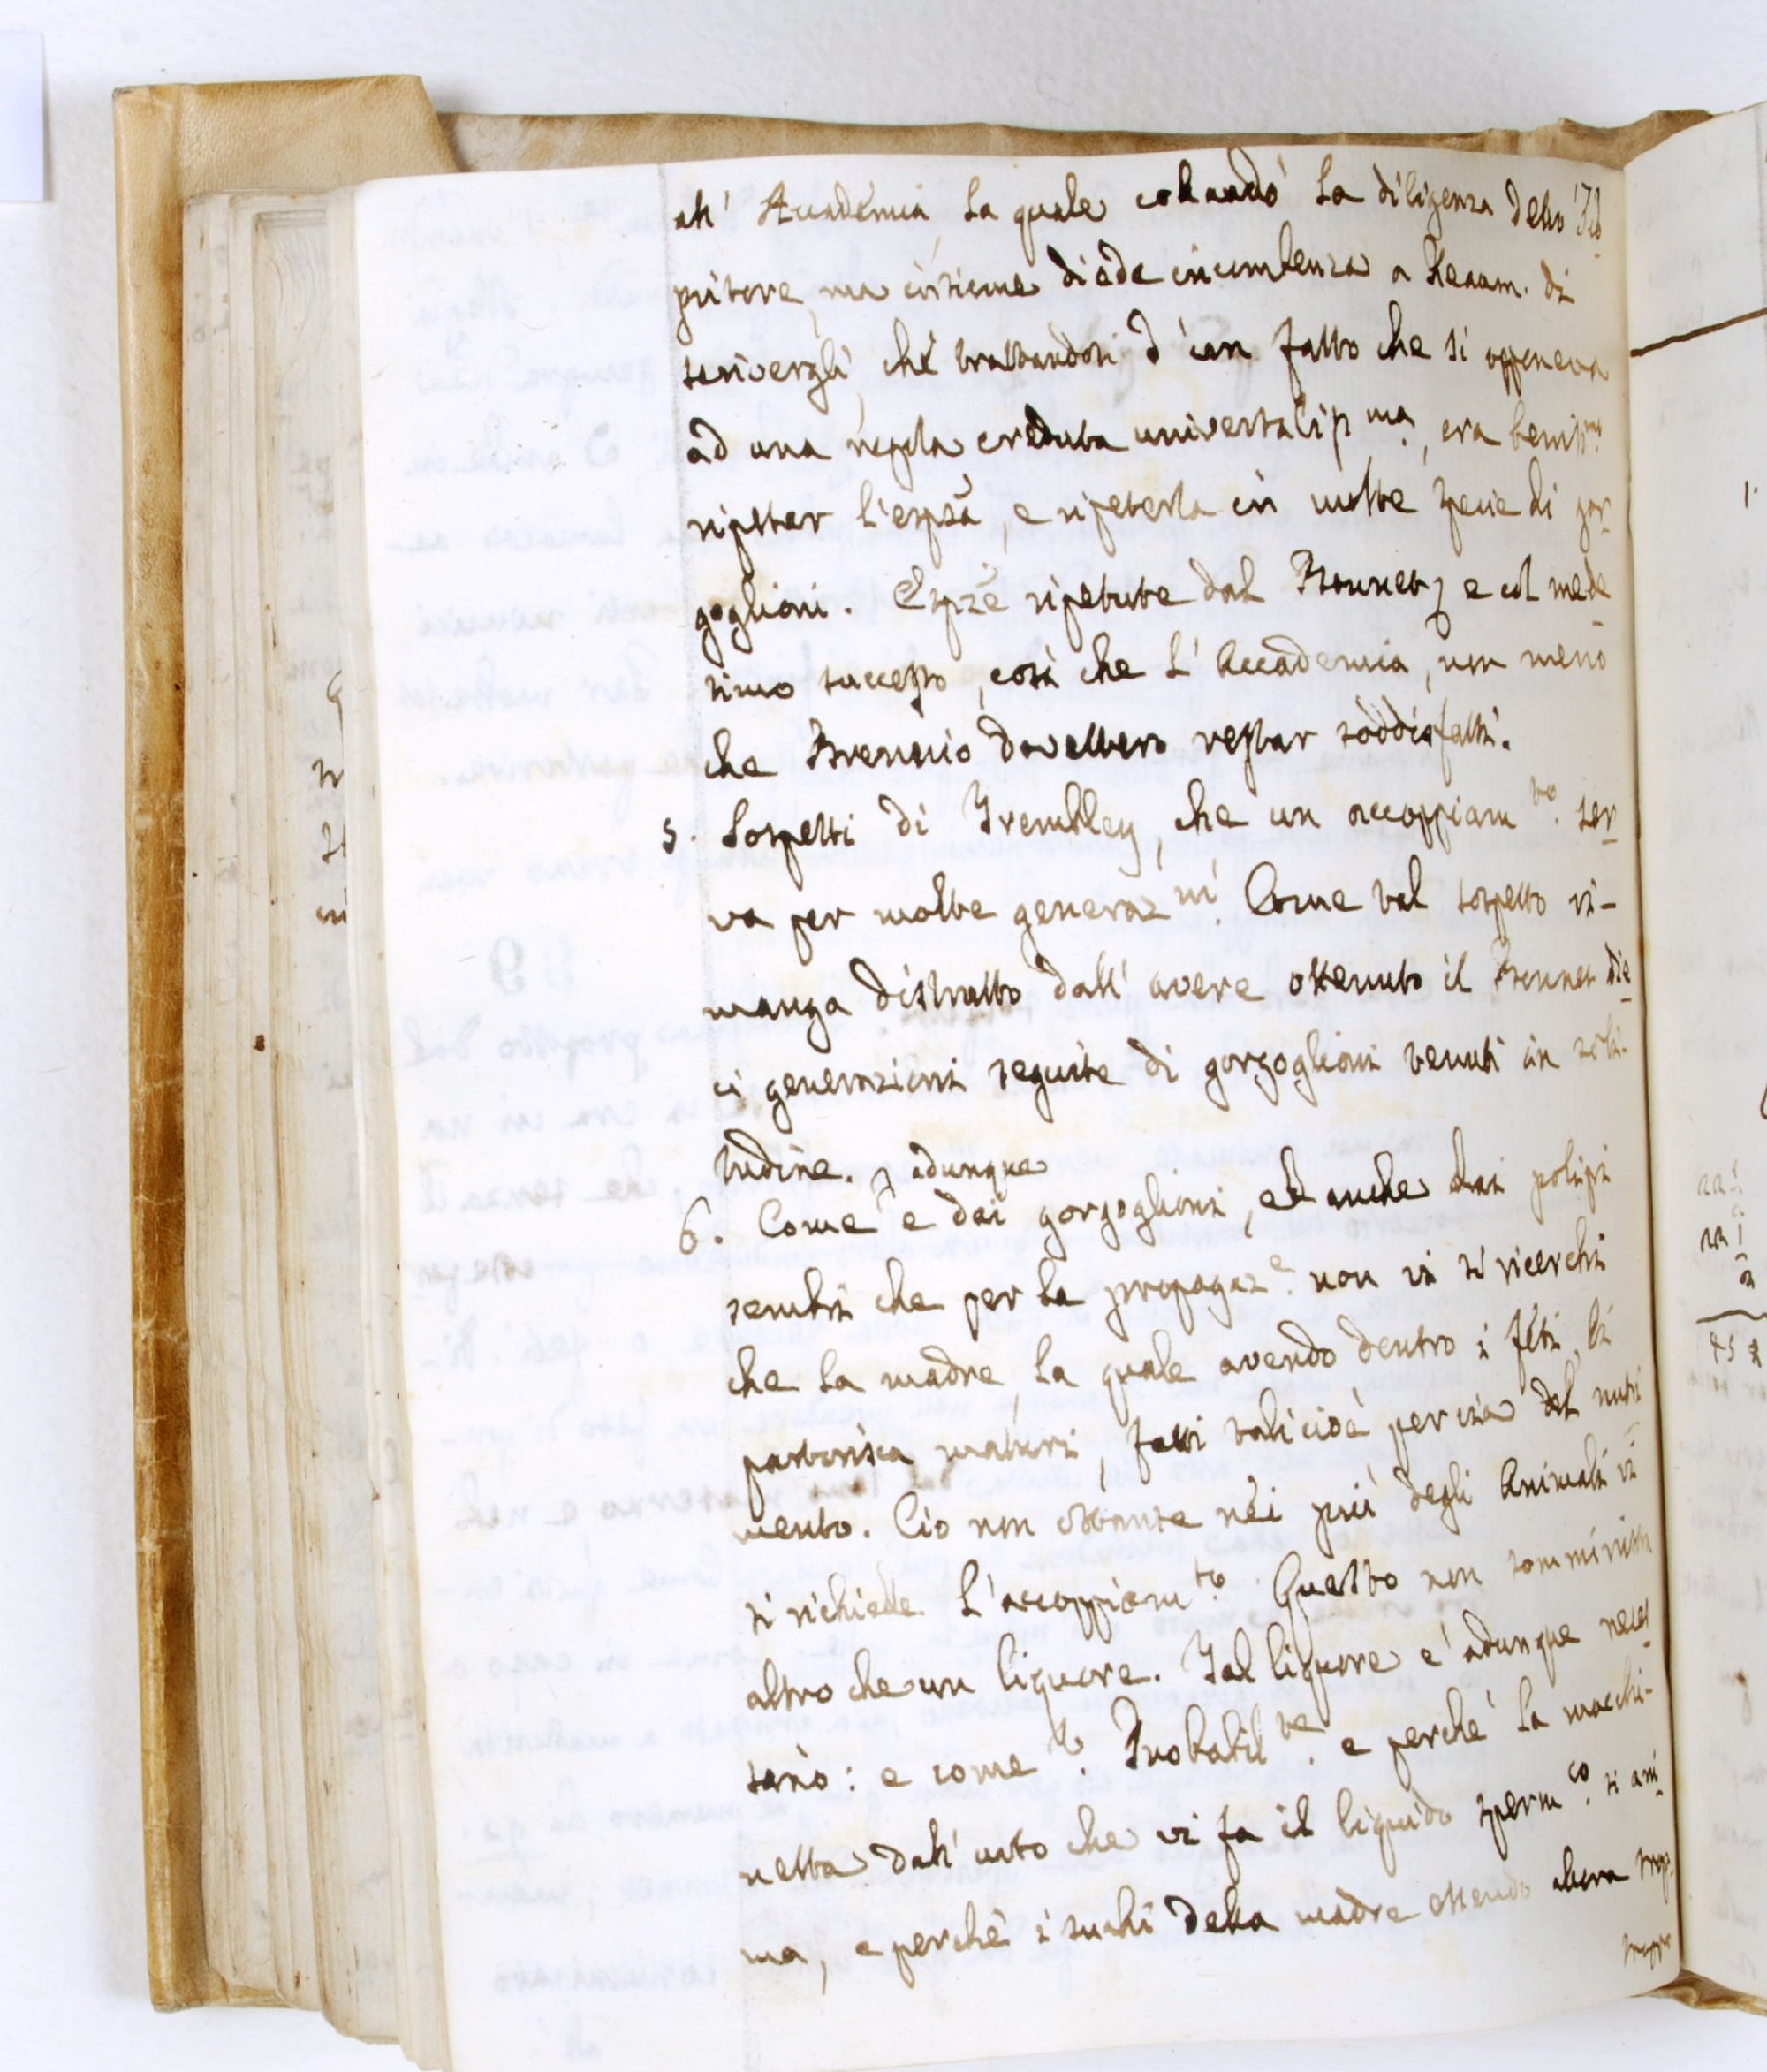 all' Accademia la quale comendò la diligenza dello
pritore, ma insieme diede incumbenza a Reaum. di
scrivergli, che trattandosi d' un fatto che si opponeva
ad una regola creduta universalissma, era beniss.mo
ripeter l'espza, e ripeterla in molte specie di gor-
goglioni. Espze ripetute dal Bonnet, e col mede-
simo successo, così che l' Accademia, non meno
che Brennio dovettero restar soddisfatti.
5. Sospetti di Trembley, che un accoppiamto. ser-
va per molte generazni. Come tal sospetto ri-
manga distrutto dall' avere ottenuto il Bonnet die-
ci generazioni seguite di gorgoglioni tenuti in soli-
tudine.
6. Come adunque e dai gorgoglioni, ed anche dai polipi
sembri che per la propagaze. non vi si ricerchi
che la madre, la quale avendo dentro i feti, li
partorisca maturi, fatti tali cioè per via del nutri-
mento. Ciò non ostante nei più degli Animali vi
si richiede l'accoppiamto. Questo non somministra
altro che un liquore. Tal liquore è adunque neces-
sario: e come? Probabilte. e perchè la macchi-
netta dall' urto che vi fa il liquido spermco. si ani-
ma, e perchè i suchi della madre essendo allora